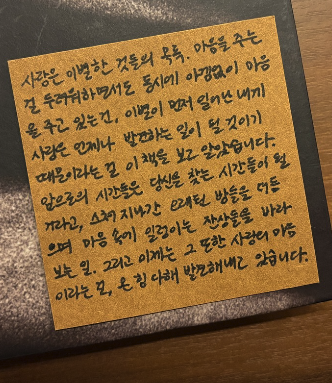 사랑은 이별한 것들의 목록. 마음을 주는
걸 두려워하면서도 동시에 아낌없이 마음
을 주고 있는 건, 이별이 먼저 일어난 내게
사랑은 언제나 발견하는 일이 될 것이기
때문이라는 걸 이 책을 보고 알았습니다.
앞으로의 시간들은 당신을 찾는 시간들이 될
거라고, 스쳐 지나간 오래된 밤들을 더듬
으며 마음 속에 일렁이는 잔상들을 바라
보는 일. 그리고 이제는 그 또한 사랑의 마음
이라는 걸, 온 힘 다해 발견해내고 싶습니다.